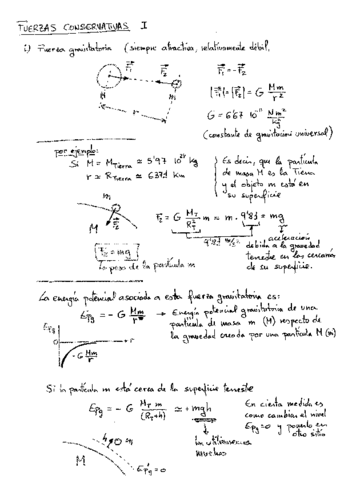 FUERZAS CONSERVATIVAS I
i) Fuerza gravitatoria (siempre atractiva, relativamente débil,
M F₁ F₂ m
r
F₁ = -F₂
|F₁| = |F₂| = G Mm/r²
G = 6'67 10⁻¹¹ Nm²/kg
(constante de gravitación universal)
por ejemplo:
Si M = M_Tierra ≃ 5'97 10²⁴ kg
r ≃ R_Tierra ≃ 6371 km
Es decir, que la partícula
de masa M es la Tierra
y el objeto m está en
su superficie
m
M
F₂ = G M_T/R_T² m = m · 9'81 = mg
9'81 m/s²
F₂ = mg
la peso de la partícula m
aceleración
debida a la gravedad
terrestre en las cercanías
de su superficie.
La energía potencial asociada a esta fuerza gravitatoria es:
Epg = - G Mm/r → Energía potencial gravitatoria de una
partícula de masa m (M) respecto de
la gravedad creada por una partícula M (m)
Epg
0 r
-G Mm/r
Si la partícula m está cerca de la superficie terrestre
Epg = - G M_T m/(R_T+h) ≃ + mgh
lo utilizaremos
mucho
En cierta medida es
como cambiar el nivel
Epg=0 y ponerlo en
otro sitio
h m
M
Epg=0